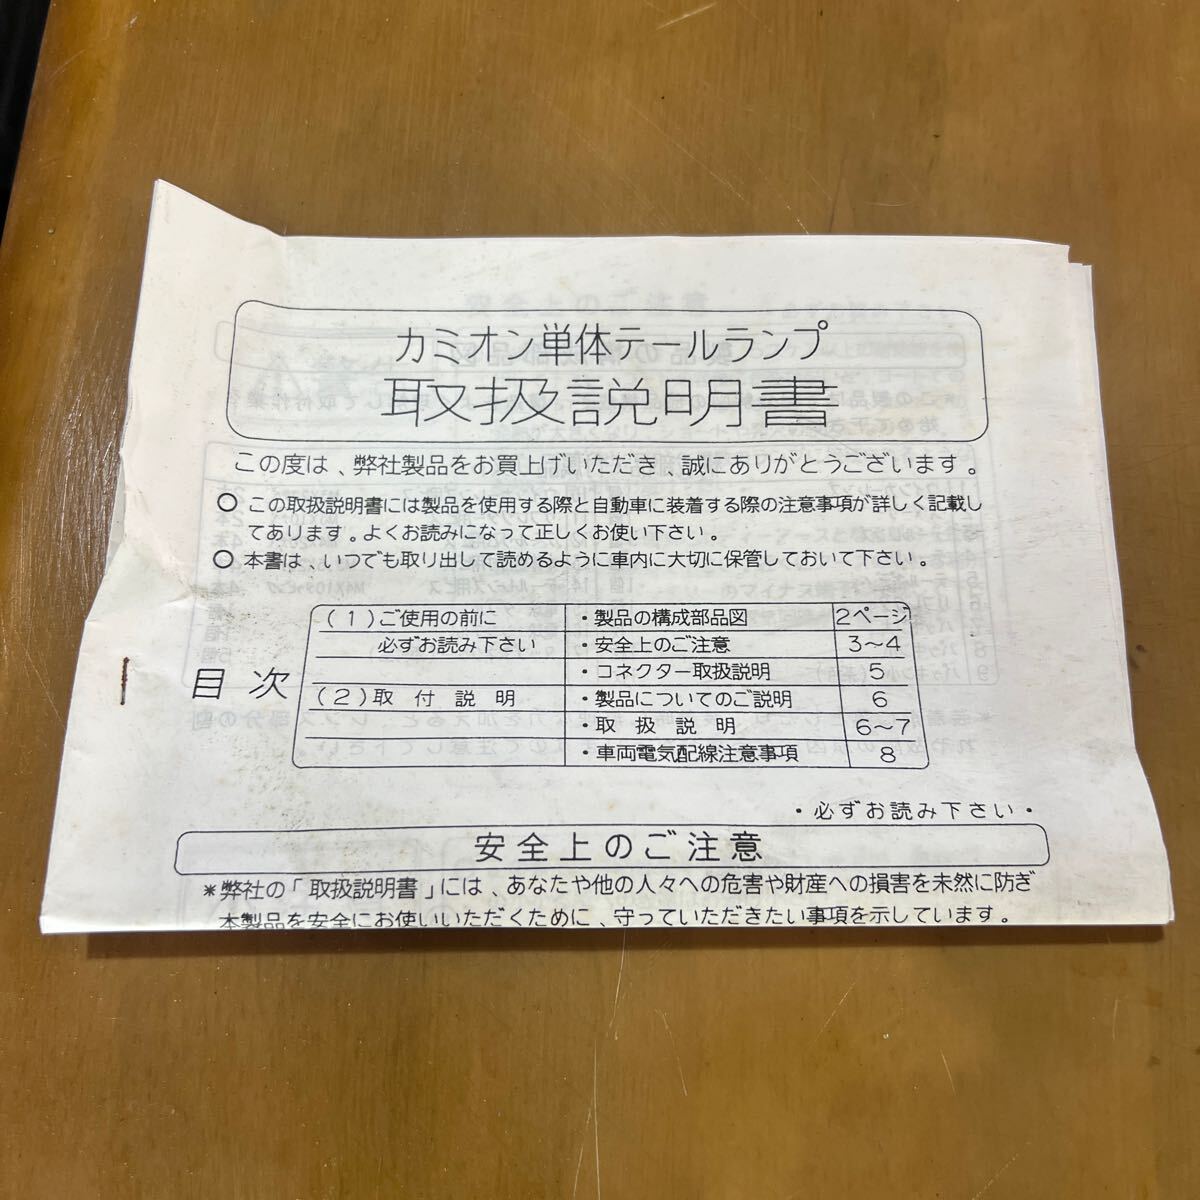 カミオン単体テールランプ
取扱説明書
この度は、弊社製品をお買上げいただき、誠にありがとうございます。
○ この取扱説明書には製品を使用する際と自動車に装着する際の注意事項が詳しく記載し
てあります。よくお読みになって正しくお使い下さい。
○ 本書は、いつでも取り出して読めるように車内に大切に保管しておいて下さい。
目次
(1)ご使用の前に ・製品の構成部品図 2ページ
必ずお読み下さい ・安全上のご注意 3〜4
・コネクター取扱説明 5
(2)取付説明 ・製品についてのご説明 6
・取扱説明 6〜7
・車両電気配線注意事項 8
・必ずお読み下さい・
安全上のご注意
*弊社の「取扱説明書」には、あなたや他の人々への危害や財産への損害を未然に防ぎ
本製品を安全にお使いいただくために、守っていただきたい事項を示しています。